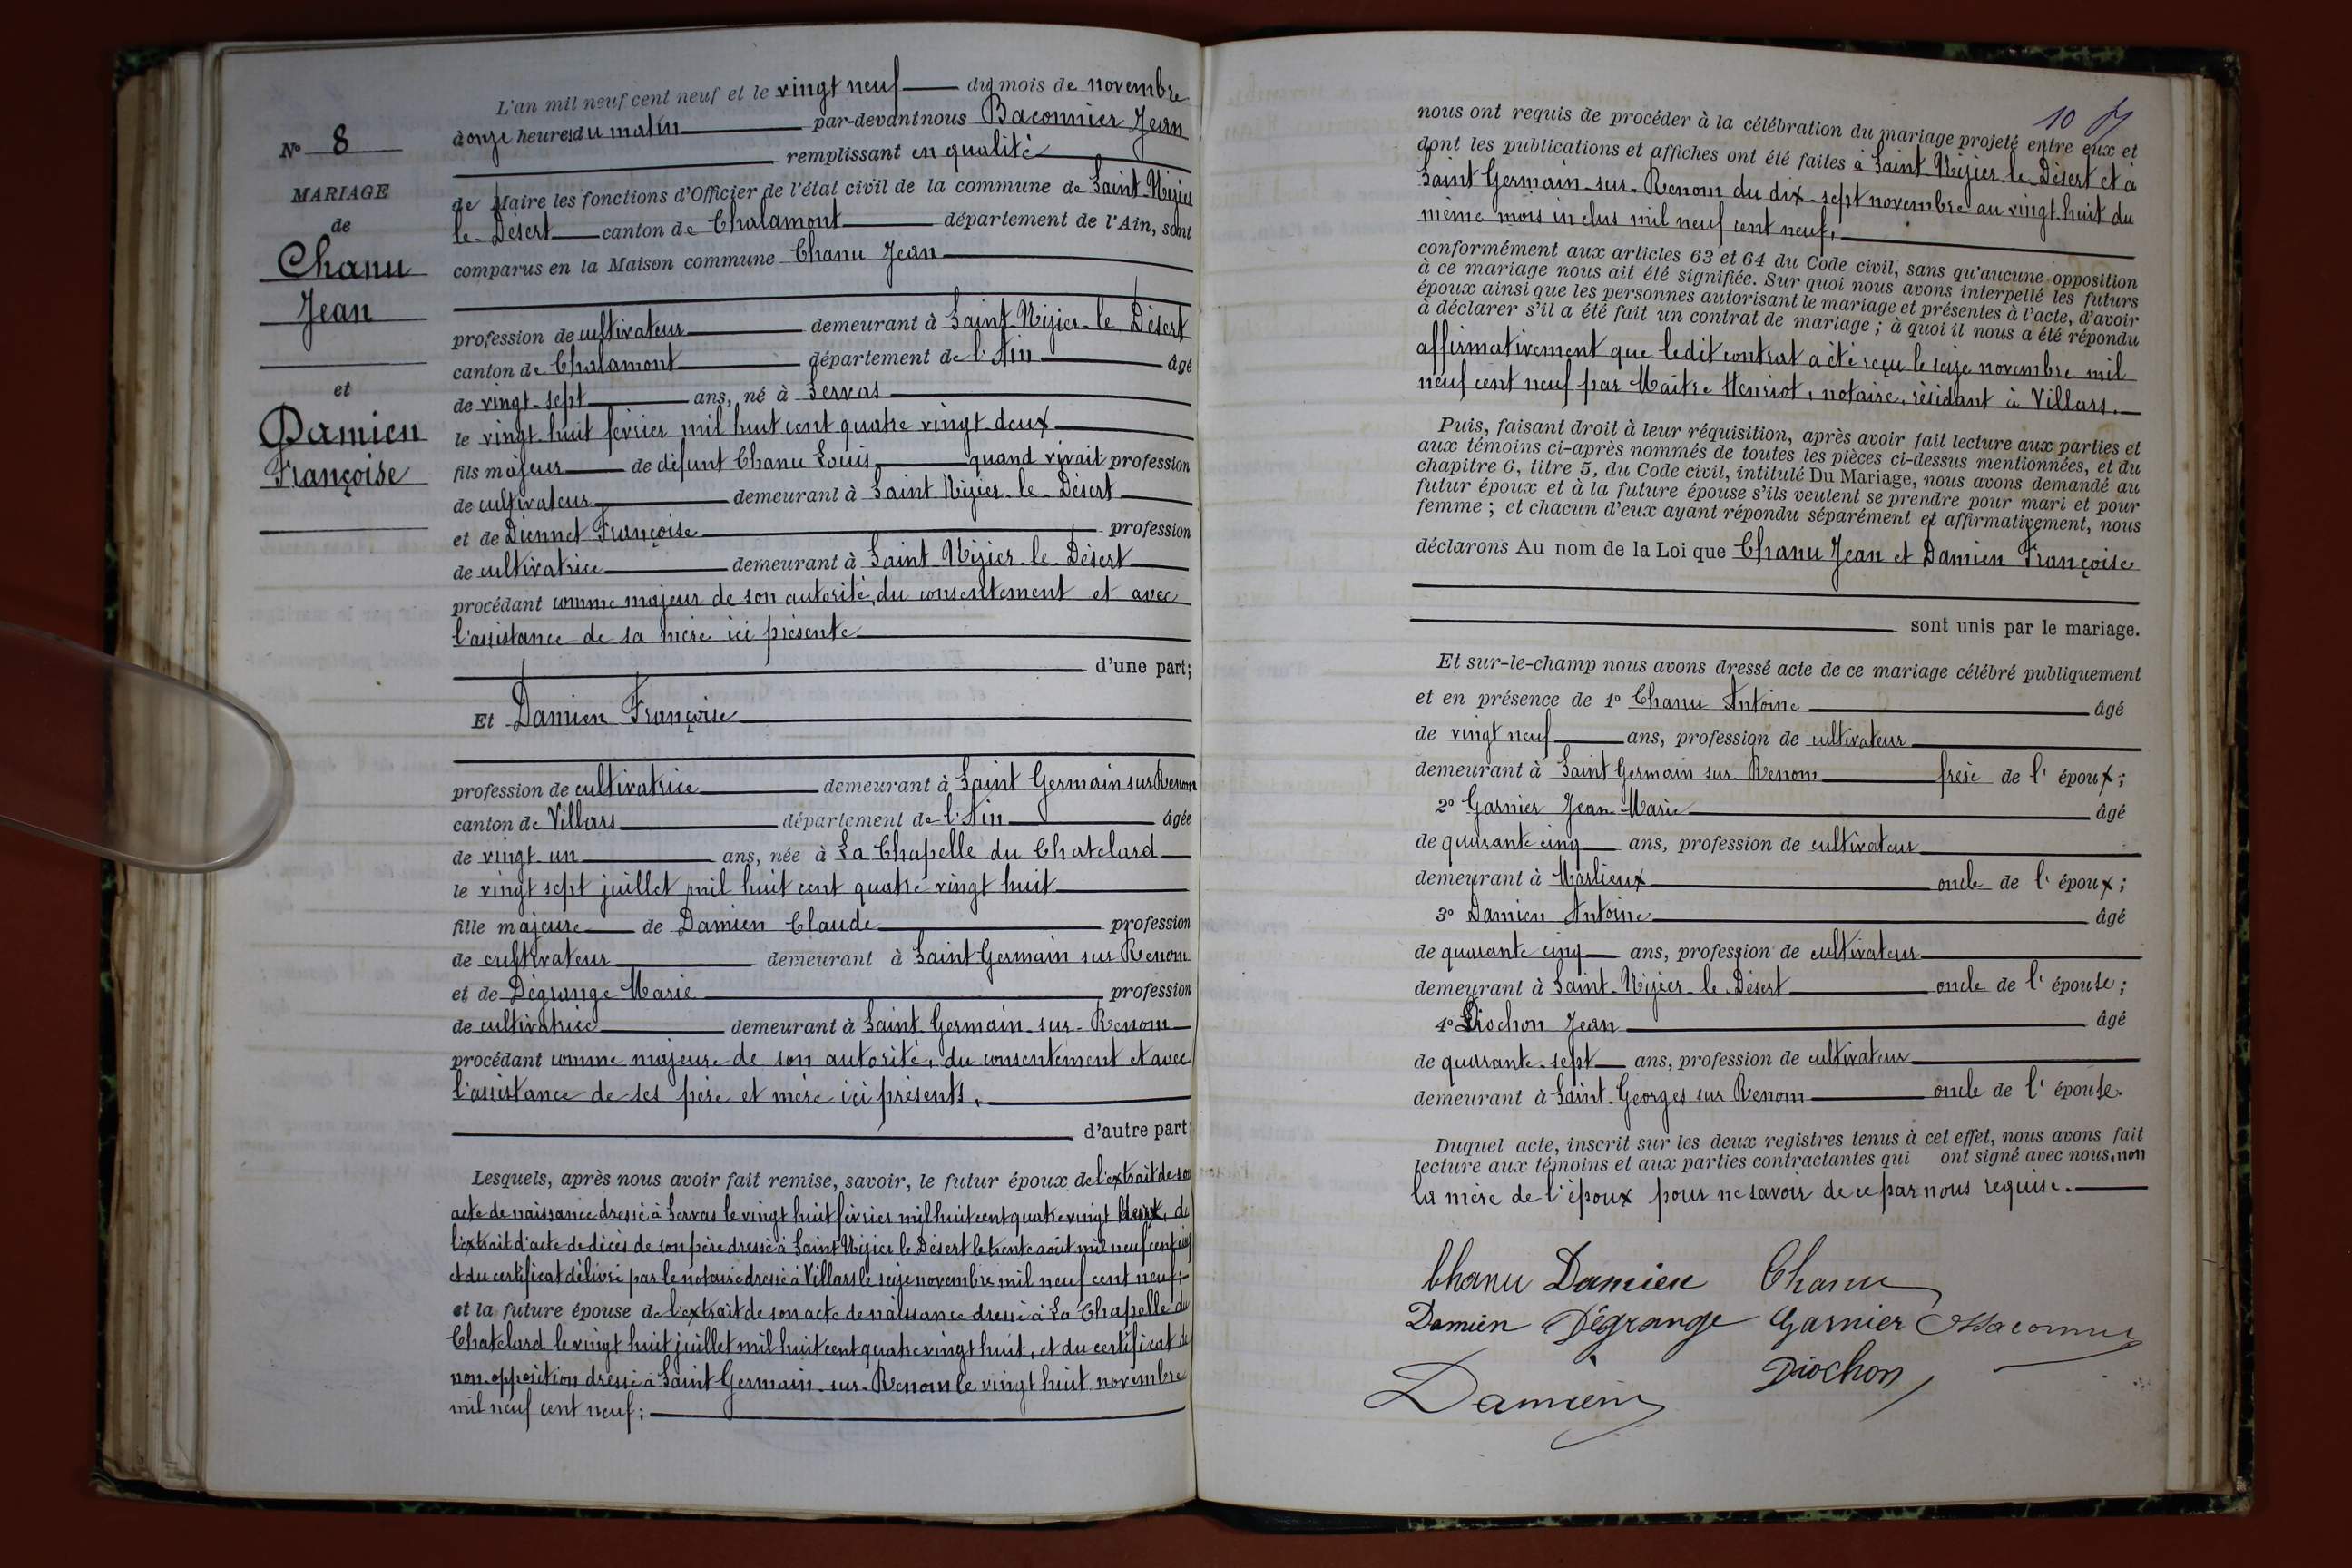 N° 8
MARIAGE
de
Chanu
Jean
et
Damien
Françoise
L'an mil neuf cent neuf et le vingt neuf du mois de novembre
à onze heures du matin par-devant nous Baconnier Jean
remplissant en qualité
de Maire les fonctions d'Officier de l'état civil de la commune de Saint-Nizier
le-Désert canton de Chalamont département de l'Ain, sont
comparus en la Maison commune Chanu Jean
profession de cultivateur demeurant à Saint-Nizier-le Désert
canton de Chalamont département de l'Ain âgé
de vingt-sept ans, né à Servas
le vingt-huit février mil huit cent quatre vingt deux
fils majeur de défunt Chanu Louis quand vivait profession
de cultivateur demeurant à Saint Nizier-le-Désert
et de Diennet Françoise profession
de cultivatrice demeurant à Saint-Nizier-le-Désert
procédant comme majeur de son autorité, du consentement et avec
l'assistance de sa mère ici présente
d'une part;
Et Damien Françoise
profession de cultivatrice demeurant à Saint Germain sur Renom
canton de Villars département de l'Ain âgée
de vingt-un ans, née à La Chapelle du Chatelard
le vingt sept juillet mil huit cent quatre vingt huit
fille majeure de Damien Claude profession
de cultivateur demeurant à Saint-Germain sur Renom
et de Dégrange Marie profession
de cultivatrice demeurant à Saint-Germain-sur-Renom
procédant comme majeure de son autorité, du consentement et avec
l'assistance de ses père et mère ici présents.
d'autre part
Lesquels, après nous avoir fait remise, savoir, le futur époux de l'extrait de son
acte de naissance dressé à Servas le vingt huit février mil huit cent quatre vingt deux, de
l'extrait d'acte de décès de son père dressé à Saint Nizier le Désert le trente août mil neuf cent cinq
et du certificat délivré par le notaire dressé à Villars le seize novembre mil neuf cent neuf;
et la future épouse de l'extrait de son acte de naissance dressé à La Chapelle du
Chatelard le vingt huit juillet mil huit cent quatre vingt huit, et du certificat de
non-opposition dressé à Saint-Germain-sur-Renom le vingt huit novembre
mil neuf cent neuf;
10
nous ont requis de procéder à la célébration du mariage projeté entre eux et
dont les publications et affiches ont été faites à Saint-Nizier-le-Désert et à
Saint Germain-sur-Renom du dix-sept novembre au vingt huit du
même mois inclus mil neuf cent neuf,
conformément aux articles 63 et 64 du Code civil, sans qu'aucune opposition
à ce mariage nous ait été signifiée. Sur quoi nous avons interpellé les futurs
époux ainsi que les personnes autorisant le mariage et présentes à l'acte, d'avoir
à déclarer s'il a été fait un contrat de mariage; à quoi il nous a été répondu
affirmativement que ledit contrat a été reçu le seize novembre mil
neuf cent neuf par Maître Henriot, notaire, résidant à Villars.
Puis, faisant droit à leur réquisition, après avoir fait lecture aux parties et
aux témoins ci-après nommés de toutes les pièces ci-dessus mentionnées, et du
chapitre 6, titre 5, du Code civil, intitulé Du Mariage, nous avons demandé au
futur époux et à la future épouse s'ils veulent se prendre pour mari et pour
femme; et chacun d'eux ayant répondu séparément et affirmativement, nous
déclarons Au nom de la Loi que Chanu Jean et Damien Françoise
sont unis par le mariage.
Et sur-le-champ nous avons dressé acte de ce mariage célébré publiquement
et en présence de 1° Chanu Antoine âgé
de vingt neuf ans, profession de cultivateur
demeurant à Saint Germain sur-Renom frère de l'époux;
2° Garnier Jean-Marie âgé
de quarante cinq ans, profession de cultivateur
demeurant à Marlieux oncle de l'époux;
3° Damien Antoine âgé
de quarante cinq ans, profession de cultivateur
demeurant à Saint-Nizier-le-Désert oncle de l'épouse;
4° Diochon Jean âgé
de quarante-sept ans, profession de cultivateur
demeurant à Saint-Georges sur Renom oncle de l'épouse.
Duquel acte, inscrit sur les deux registres tenus à cet effet, nous avons fait
lecture aux témoins et aux parties contractantes qui ont signé avec nous, non
la mère de l'époux pour ne savoir de ce par nous requise.
Chanu Damien Chanu
Damien Dégrange Garnier Baconnier
Damien Diochon